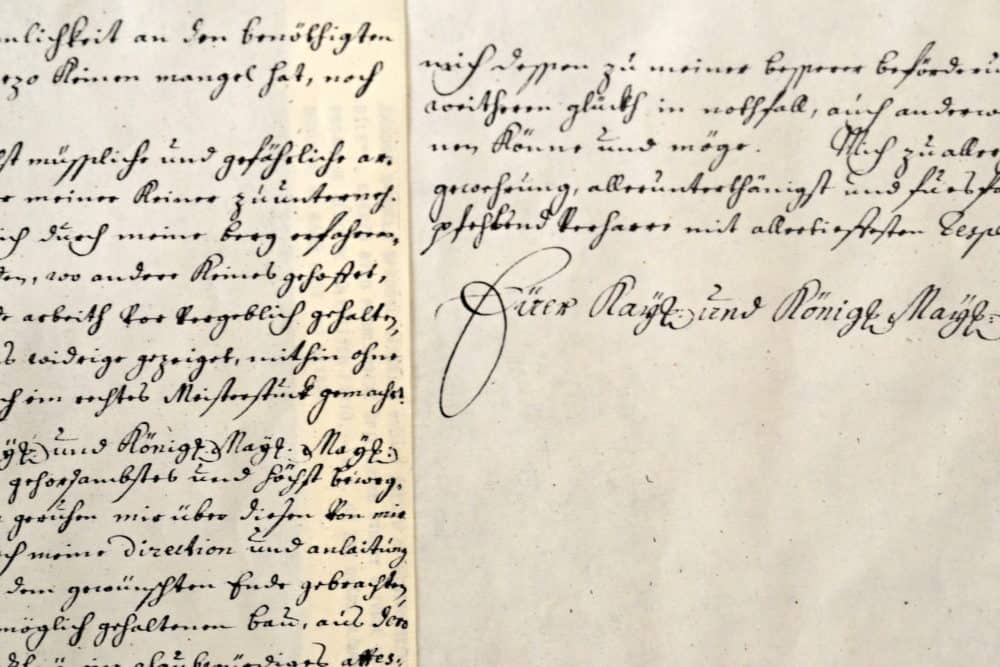 nlichkeit an den benöthigten
ezo Keinen mangel hat, noch
st müssliche und gefährliche ar-
meiner Keiner zu unterneh-
ich durch meine berg erfahren-
den, wo andere Keines gehoffet,
arbeith vor vergeblich gehalten,
s widrige gezeiget, mithin ohne
ch ein rechtes Meisterstück gemacht
ayl: und Königl: Mayt: Mayt:
gehorsambstes und höchst beweg-
geruhen mir über diesen von mir
ch meine Direction und anleitung
dem gewünschten Ende gebrachten
möglich gehaltenen bau, aus dero
glaubwürdiges attes-
mich dessen zu meiner besserer beförderu
weitheren glückh in nothfall, auch anderw
nen Könne und möge. Mich zu aller
gewehrung, allerunterthänigst und
pfehlend verharre mit allertieffesten Respe
Euer Kayl: und Königl: Mayt: